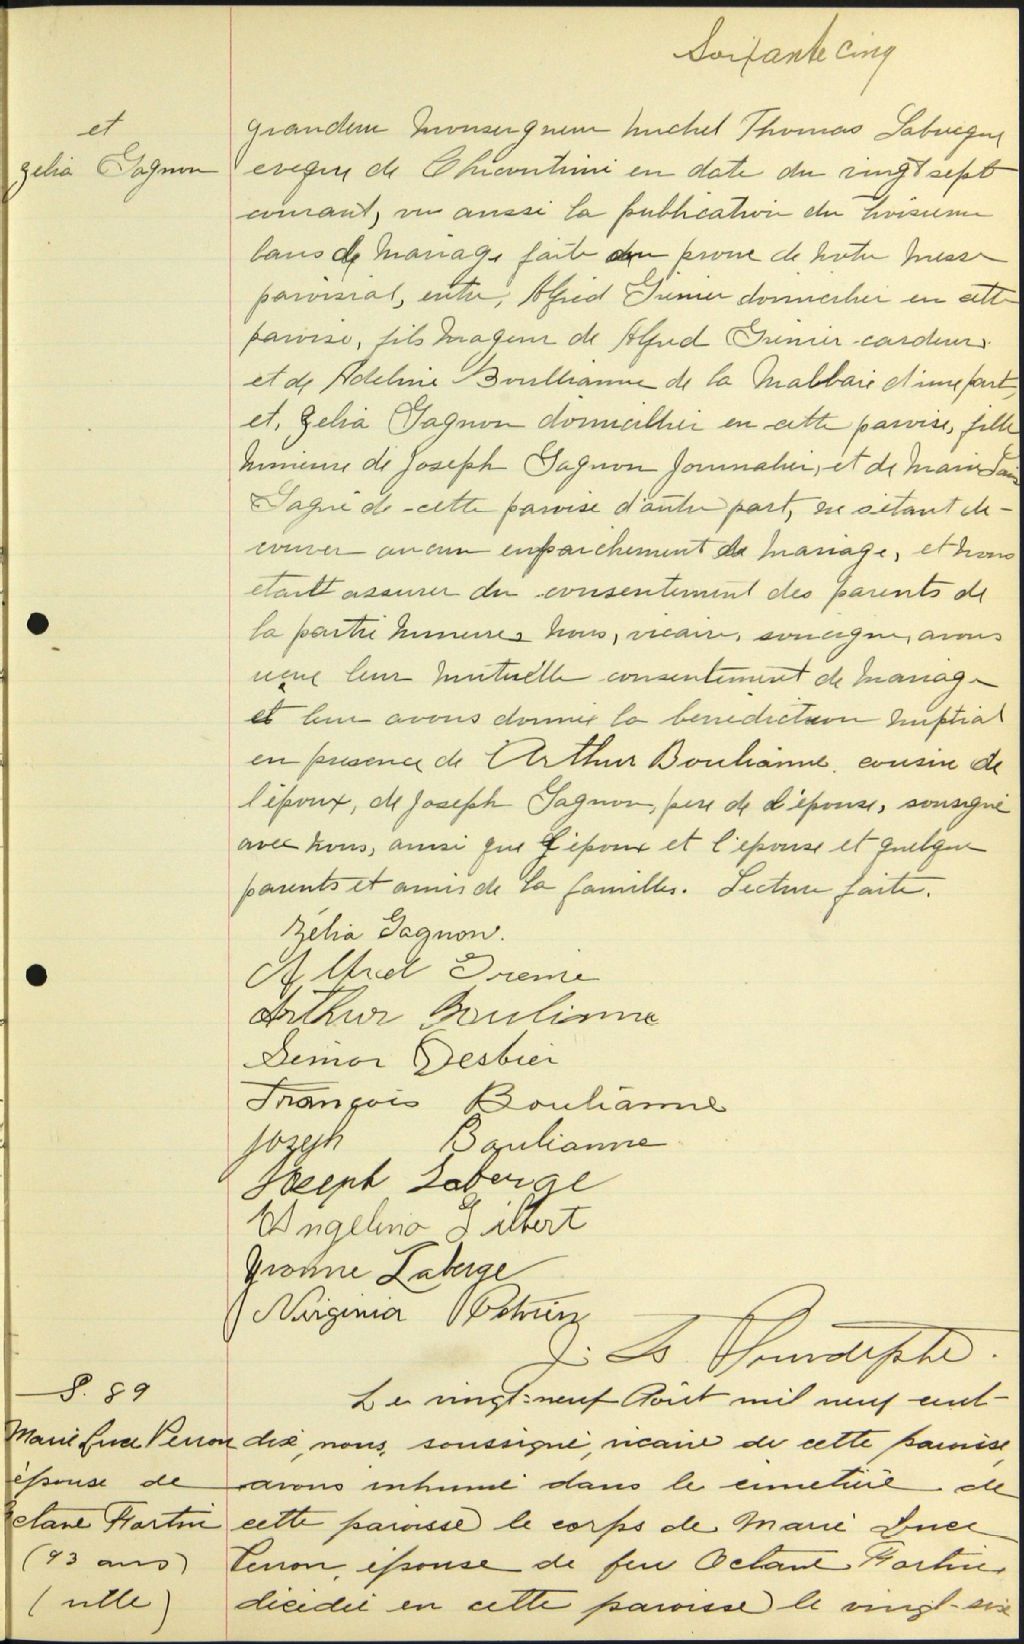 Soixante cinq
et
Zelia Gagnon
grandeur Monseigneur Michel Thomas Labrecque
eveque de Chicoutimi en date du vingt sept
courant, vu aussi la publication du troisieme
bans de Mariage faite au prone de notre Messe
paroisial, entre, Alfred Grenier domicilier en cette
paroise, fils Mageur de Alfred Grenier cardeur
et de Adeline Boullianne de la Malbaie d'une part,
et, Zelia Gagnon domicillier en cette paroise, fille
Mineure de Joseph Gagnon Journalier, et de Marie
Gagné de cette paroise d'autre part, ne s'etant de-
couver aucun empaichement de Mariage, et nous
etant assurer du consentement des parents de
la partie Mineure, Nous, vicaire, sousigne, avons
reçue leur Mutuelle consentement de Mariage
et leur avons donnée la benediction Nuptial
en presence de Arthur Boulianne, cousin de
l'époux, de Joseph Gagnon, pere de l'épouse, sousigné
avec Nous, ainsi que l'époux et l'epouse et quelque
parents et amis de la familles. Lecture faite.
Zélia Gagnon.
Alfred Grenie
Arthur Boulianne
Simon Desbien
François Boulianne
Jozeph Boulianne
Joseph Laberge
Angelina Gilbert
Yvonne Laberge
Virginia Potvin
S. 89
Marie Luce Perron
épouse de
Octave Fortin
(93 ans)
(ville)
Le vingt-neuf Août mil neuf cent-
dix, nous, soussigné, vicaire de cette paroisse,
avons inhumé dans le cimetière de
cette paroisse le corps de Marie Luce
Perron, épouse de feu Octave Fortin,
décédée en cette paroisse le vingt-six